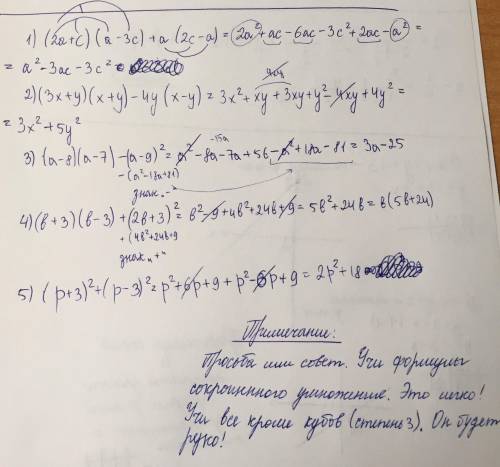 1) (2a+c)(a-3c)+a(2c-a)=2a²+ac-6ac-3c²+2ac-a²=
=a²-3ac-3c²
4xy
2)(3x+y)(x+y)-4y(x-y)=3x²+xy+3xy+y²-4xy+4y²=
=3x²+5y²
-15a
3) (a-8)(a-7)-(a-9)²=a²-8a-7a+56-a²+18a-81=3a-25
-(a²-18a+81)
знак „-"
4)(в+3)(в-3)+(2в+3)²=в²-9+4в²+24в+9=5в²+24в=в(5в+24)
+(4в²+24в+9
знак „+"
5) (p+3)²+(p-3)²=p²+6p+9+p²-6p+9=2p²+18
Примечание:
Просьба или совет. Учи формулы
сокроиннного умножение. Это легко!
Учи все кроме кубов (степень 3). Он будет
руко!